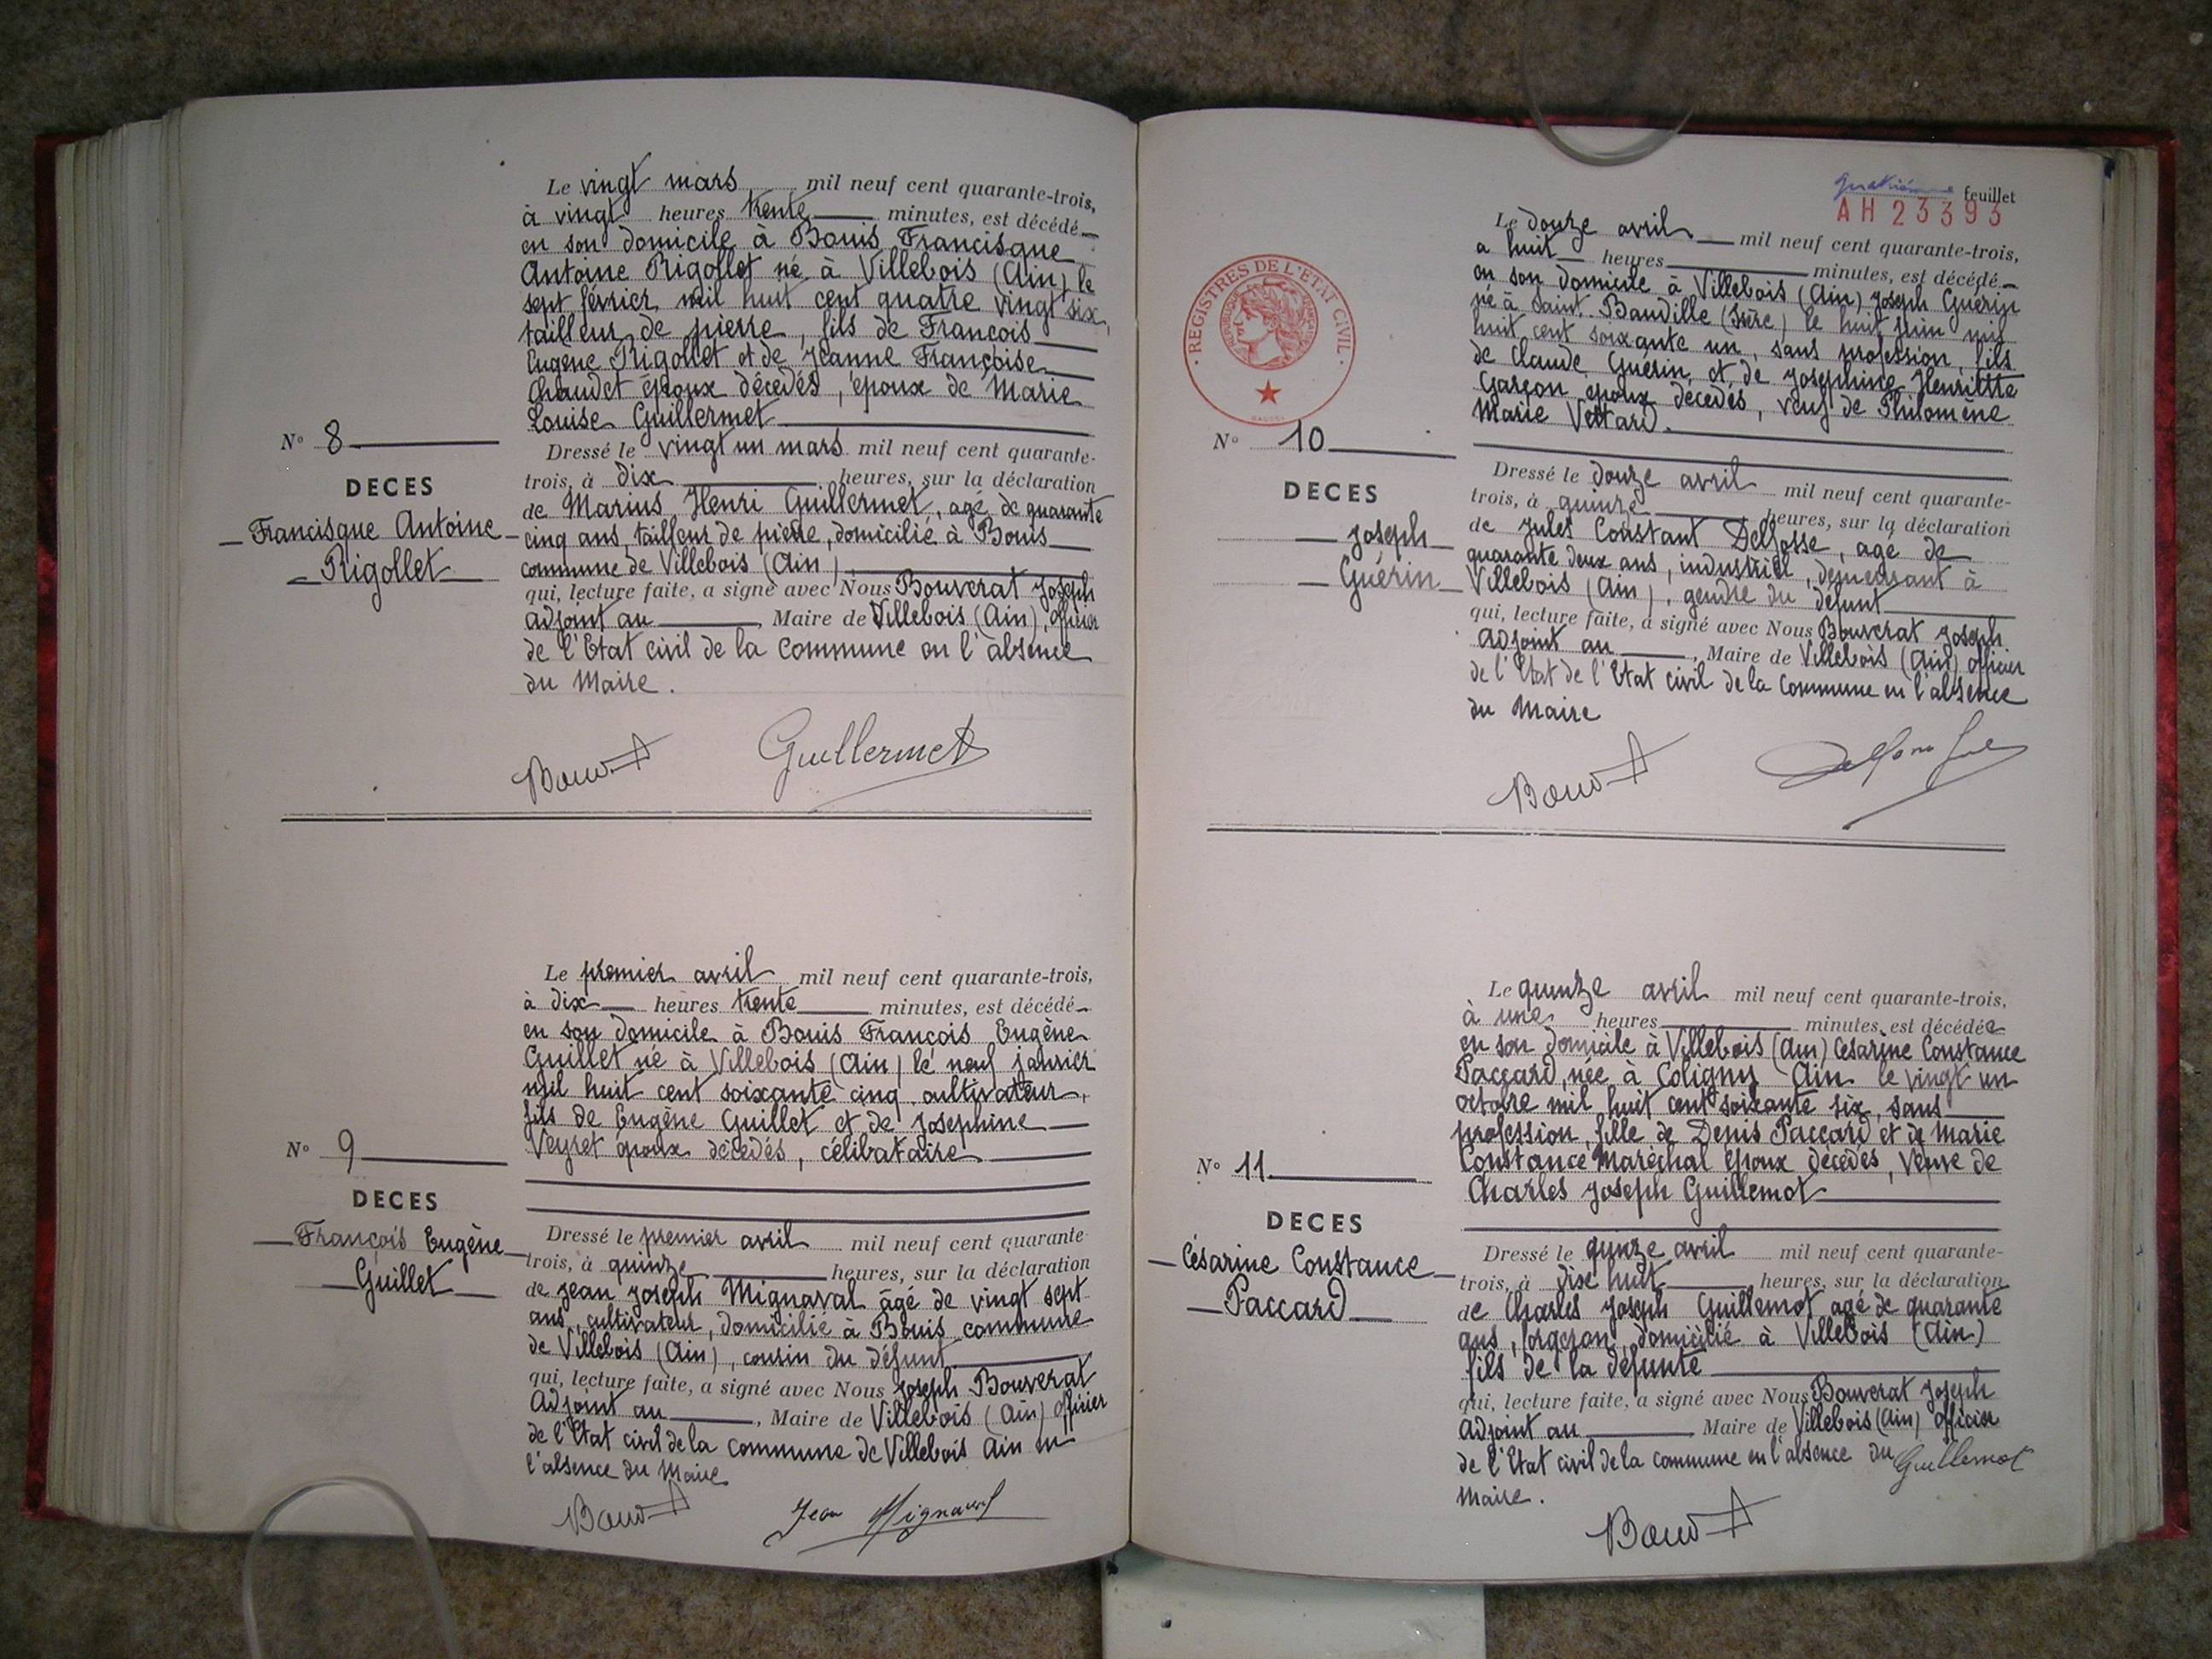 Le vingt mars mil neuf cent quarante-trois,
à vingt heures trente minutes, est décédé
en son domicile à Bouis Francisque
Antoine Rigollet né à Villebois (Ain) le
sept février mil huit cent quatre vingt six,
tailleur de pierre, fils de François
Eugène Rigollet et de Jeanne Françoise
Chaudet époux décédés, époux de Marie
Louise Guillermet
N° 8
DECES
Francisque Antoine
Rigollet
Dressé le vingt un mars mil neuf cent quarante-
trois, à dix heures, sur la déclaration
de Marius Henri Guillermet, agé de quarante
cinq ans, tailleur de pierre, domicilié à Bouis
commune de Villebois (Ain)
qui, lecture faite, a signé avec Nous Bouverat Joseph
adjoint au Maire de Villebois (Ain), officier
de l'Etat civil de la commune en l'absence
du Maire.
Guillermet
Le premier avril mil neuf cent quarante-trois,
à dix heures trente minutes, est décédé
en son domicile à Bouis François Eugène
Guillet né à Villebois (Ain) le neuf janvier
mil huit cent soixante cinq cultivateur,
fils de Eugène Guillet et de Josephine
Veyret époux décédés, célibataire
N° 9
DECES
François Eugène
Guillet
Dressé le premier avril mil neuf cent quarante
trois, à quinze heures, sur la déclaration
de Jean Joseph Mignaval âgé de vingt sept
ans, cultivateur, domicilié à Bouis commune
de Villebois (Ain), cousin du défunt
qui, lecture faite, a signé avec Nous Joseph Bouverat
Adjoint au, Maire de Villebois (Ain) officier
de l'Etat civil de la commune de Villebois Ain en
l'absence du Maire
Jean Mignaval
Quatrième feuillet
AH 23393
REGISTRES DE L'ÉTAT CIVIL
Le douze avril mil neuf cent quarante-trois,
a huit heures minutes, est décédé
en son domicile à Villebois (Ain) Joseph Guérin
né à Saint. Baudille (Isère) le huit juin mil
huit cent soixante un, sans profession, fils
de Claude Guérin et de Josephine Henriette
Garçon époux décédés, veuf de Philomène
Marie Vettard.
N° 10
DECES
Joseph
Guérin
Dressé le douze avril mil neuf cent quarante-
trois, à quinze heures, sur la déclaration
de Jules Constant Delfosse, agé de
quarante deux ans, industriel, demeurant à
Villebois (Ain), gendre du défunt
qui, lecture faite, a signé avec Nous Bouverat Joseph
Adjoint au, Maire de Villebois (Ain) officier
de l'Etat de l'Etat civil de la commune en l'absence
du Maire
Le quinze avril mil neuf cent quarante-trois,
à une heures minutes, est décédée
en son domicile à Villebois (Ain) Césarine Constance
Paccard, née à Coligny Ain le vingt un
octobre mil huit cent soixante six, sans
profession, fille de Denis Paccard et de Marie
Constance Maréchal époux décédés, veuve de
Charles Joseph Guillemot
N° 11
DECES
Césarine Constance
Paccard
Dressé le quinze avril mil neuf cent quarante-
trois, à dix huit heures, sur la déclaration
de Charles Joseph Guillemot agé de quarante
ans, forgeron, domicilié à Villebois (Ain)
fils de la défunte
qui, lecture faite, a signé avec Nous Bouverat Joseph
Adjoint au Maire de Villebois (Ain) officier
de l'Etat civil de la commune en l'absence du
Maire.
Guillemot